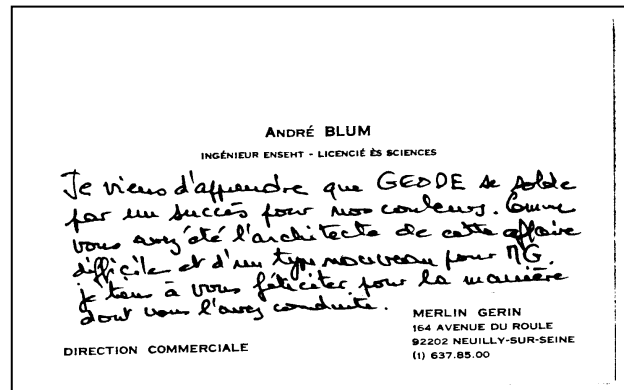 ANDRÉ BLUM
INGÉNIEUR ENSEHT - LICENCIÉ ÈS SCIENCES
Je viens d'apprendre que GEODE se solde
par un succès pour nos couleurs. Comme
vous avez été l'architecte de cette affaire
difficile et d'un type nouveau pour MG.
je tiens à vous féliciter pour la manière
dont vous l'avez conduite.
MERLIN GERIN
164 AVENUE DU ROULE
92202 NEUILLY-SUR-SEINE
(1) 637.85.00
DIRECTION COMMERCIALE